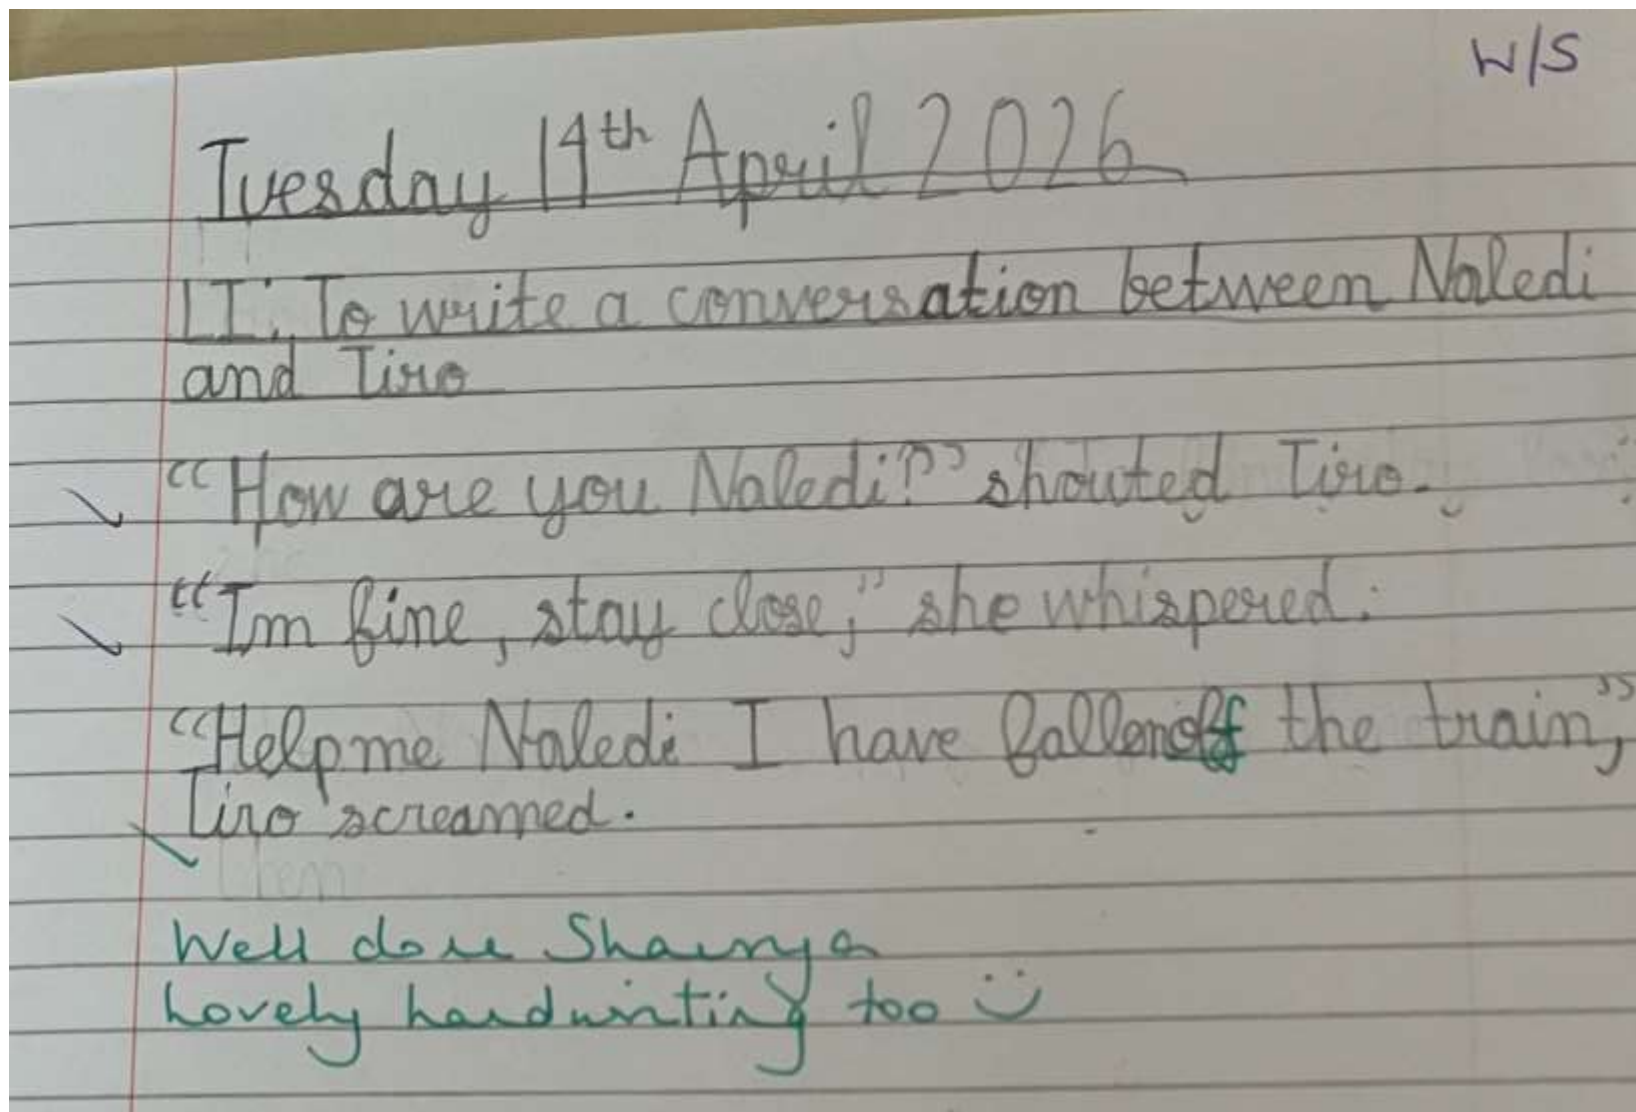 W/S
Tuesday 14th April 2026
LI: To write a conversation between Naledi
and Tiro
"How are you Naledi?" shouted Tiro.
"Im fine, stay close," she whispered.
"Help me Naledi I have fallen off the train,"
Tiro screamed.
Well done Shaenya
Lovely handwriting too